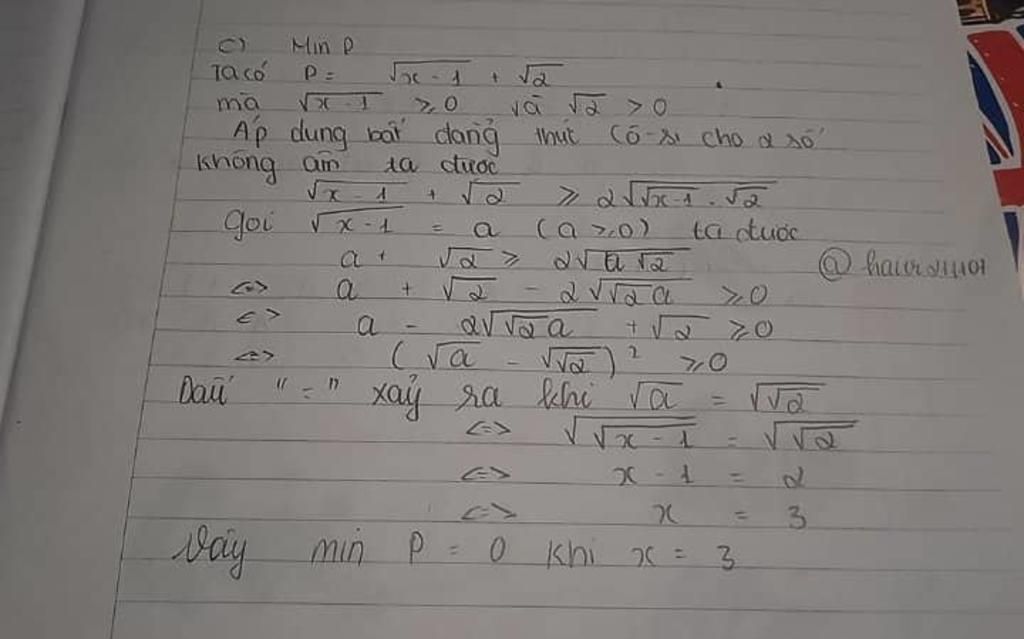 c) Min P
Ta có P = √(x - 1) + √2
mà √(x - 1) ≥ 0 và √2 > 0
Áp dụng bất đẳng thức Cô-si cho 2 số
không âm ta được
√(x - 1) + √2 ≥ 2√(√(x - 1) . √2)
Gọi √(x - 1) = a (a ≥ 0) ta được
a + √2 ≥ 2√(a√2)
<=> a + √2 - 2√(√2a) ≥ 0
<=> a - 2√(√2a) + √2 ≥ 0
<=> (√a - √√2)² ≥ 0
Dấu "=" xảy ra khi √a = √√2
<=> √√(x - 1) = √√2
<=> x - 1 = 2
<=> x = 3
Vậy min P = 0 khi x = 3